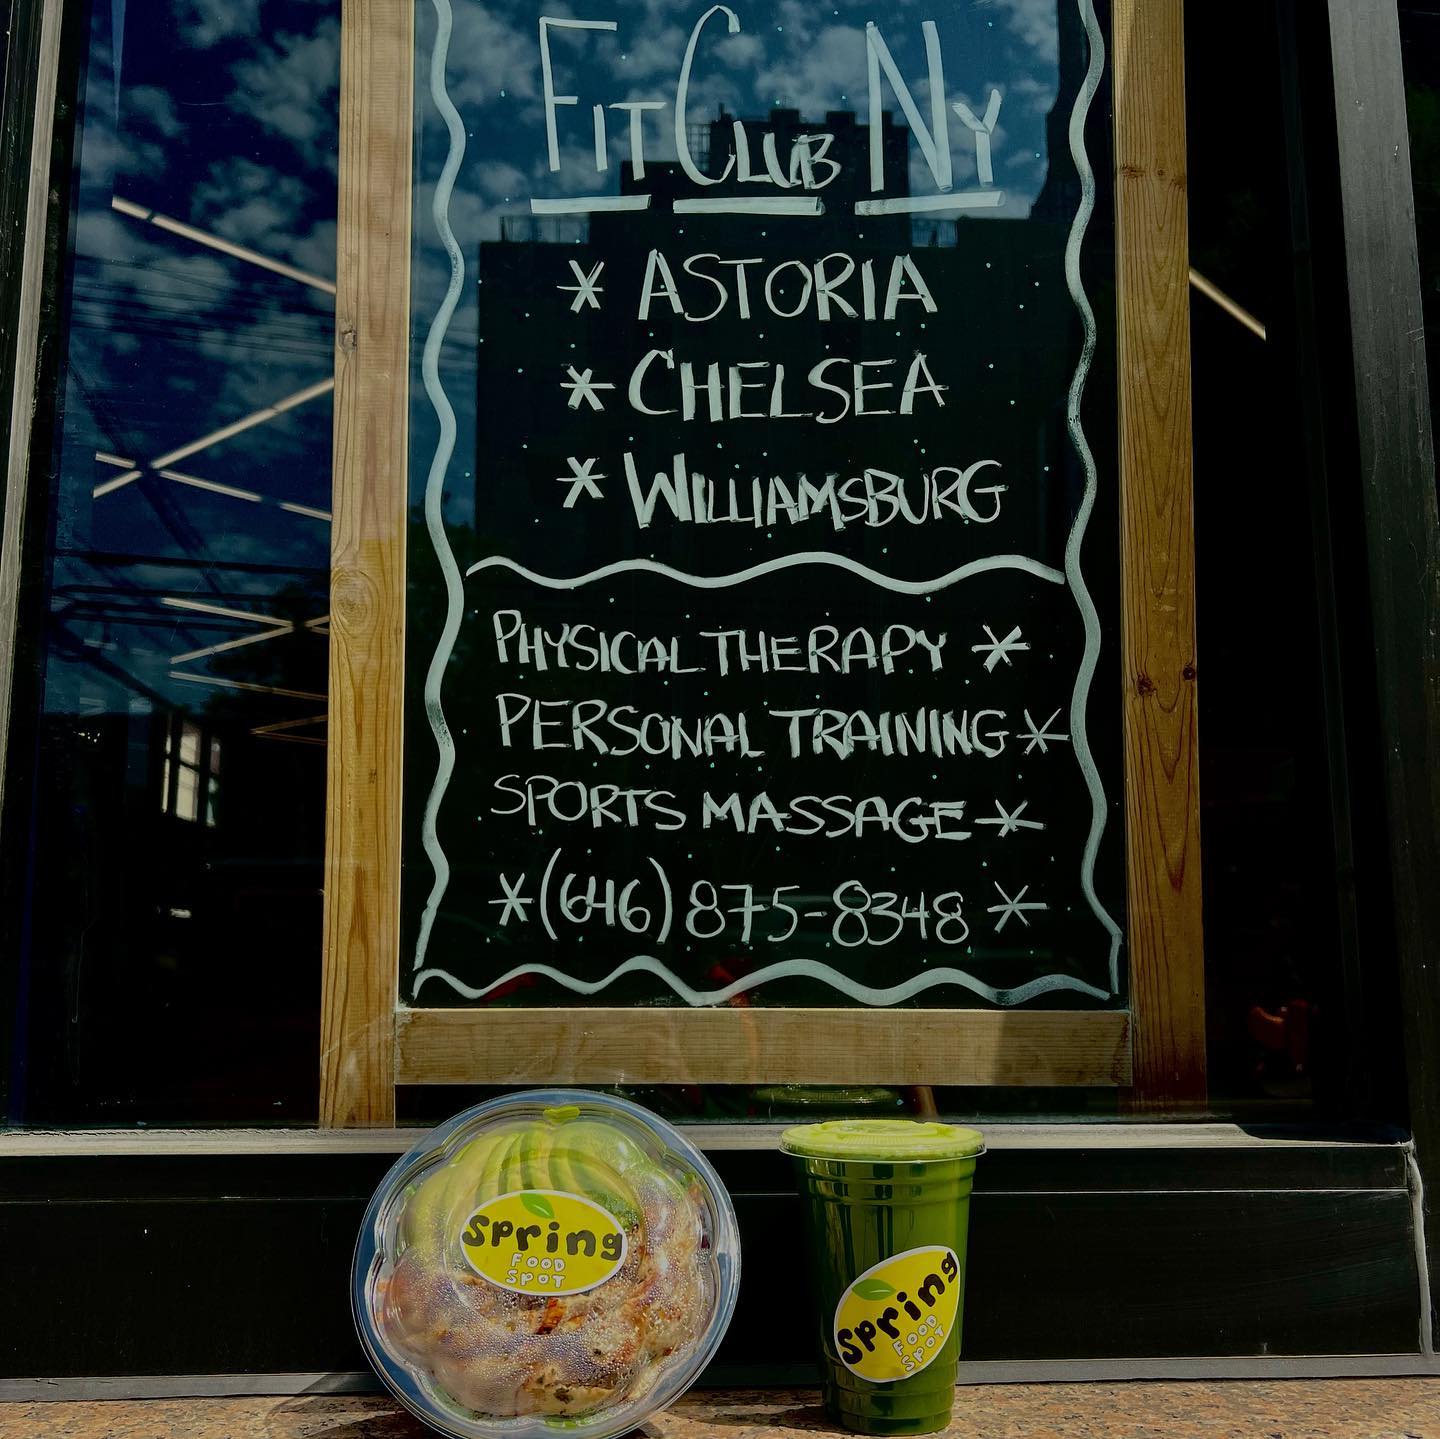 FIT CLUB NY
* ASTORIA
* CHELSEA
* WILLIAMSBURG
PHYSICAL THERAPY *
PERSONAL TRAINING *
SPORTS MASSAGE *
* (646) 875-8348 *
Spring
FOOD
SPOT
Spring
FOOD
SPOT